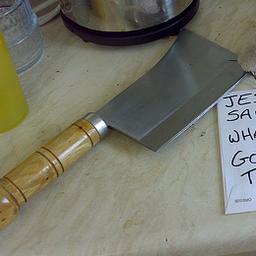 JE
SA
WHA
GO
T